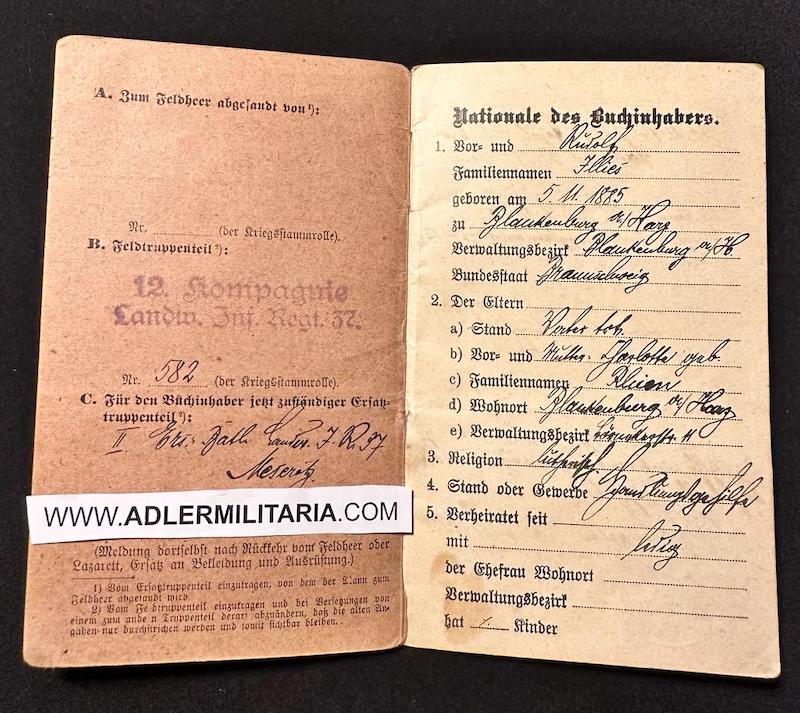 A. Zum Feldheer abgesandt von¹):
Nr. (der Kriegsstammrolle).
B. Feldtruppenteil²):
12. Kompagnie
Landw. Inf. Regt. 37.
Nr. 582 (der Kriegsstammrolle).
C. Für den Buchinhaber jetzt zuständiger Ersatz-
truppenteil²):
II. Ers. Batl. Landw. I. R. 37
WWW.ADLERMILITARIA.COM
(Meldung dortselbst nach Rückkehr vom Feldheer oder
Lazarett, Ersatz an Bekleidung und Ausrüstung.)
1) Vom Ersatztruppenteil einzutragen, von dem der Mann zum
Feldheer abgesandt wird.
2) Vom Feldtruppenteil einzutragen und bei Versetzungen von
einem zum anderen Truppenteil derart abzuändern, daß die alten An-
gaben nur durchstrichen werden und somit sichtbar bleiben.
Nationale des Buchinhabers.
1. Vor- und Rudolf
Familiennamen Illies
geboren am 5. 11. 1885
zu Blankenburg a/Harz
Verwaltungsbezirk Blankenburg a/H.
Bundesstaat Braunschweig
2. Der Eltern
a) Stand Vater tot
b) Vor- und Mutter: Charlotte geb.
c) Familiennamen
d) Wohnort Blankenburg a/Harz
e) Verwaltungsbezirk 11
3. Religion lutherisch
4. Stand oder Gewerbe Handlungsgehilfe
5. Verheiratet seit
mit ledig
der Ehefrau Wohnort
Verwaltungsbezirk
hat Kinder